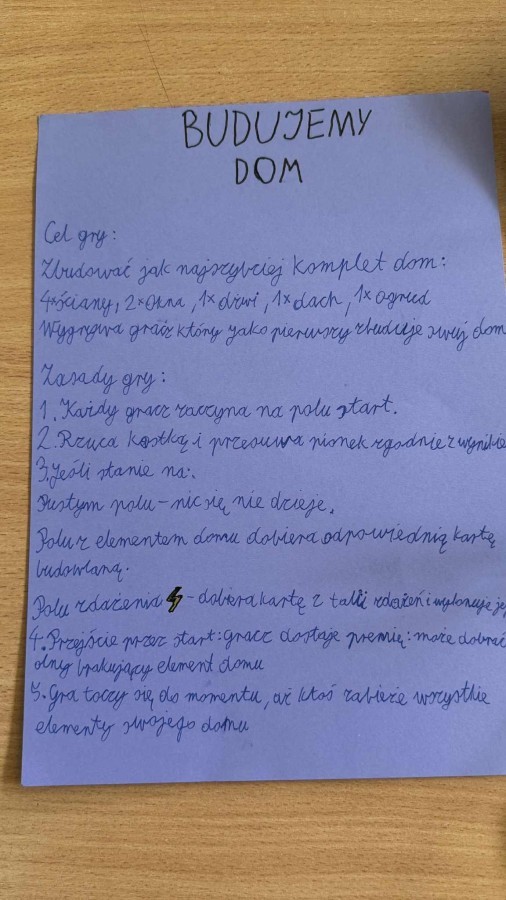 BUDUJEMY
DOM
Cel gry:
Zbudować jak najszybciej komplet dom:
4×ściany, 2×okna, 1×drzwi, 1×dach, 1×ogrud
Wygrywa gracz który jako pierwszy zbuduje swuj dom
Zasady gry:
1. Każdy gracz zaczyna na polu start.
2. Rzuca kostką i przesuwa pionek zgodnie z wynikie
3. Jeśli stanie na:
Pustym polu – nic się nie dzieje.
Polu z elementem domu dobiera odpowiednią kartę
budowlaną.
Polu zdażenia ⚡ – dobiera kartę z talii zdażeń i wykonuje jej
4. Przejście przez start: gracz dostaje premię: może dobrać
brakujący element domu
5. Gra toczy się do momentu, aż ktoś zabieże wszystkie
elementy swojego domu